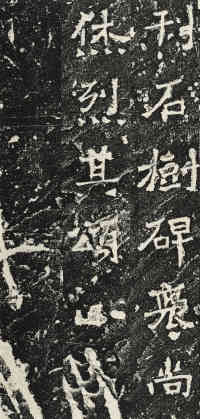 刊石樹碑褒尚
烋烈其頌曰